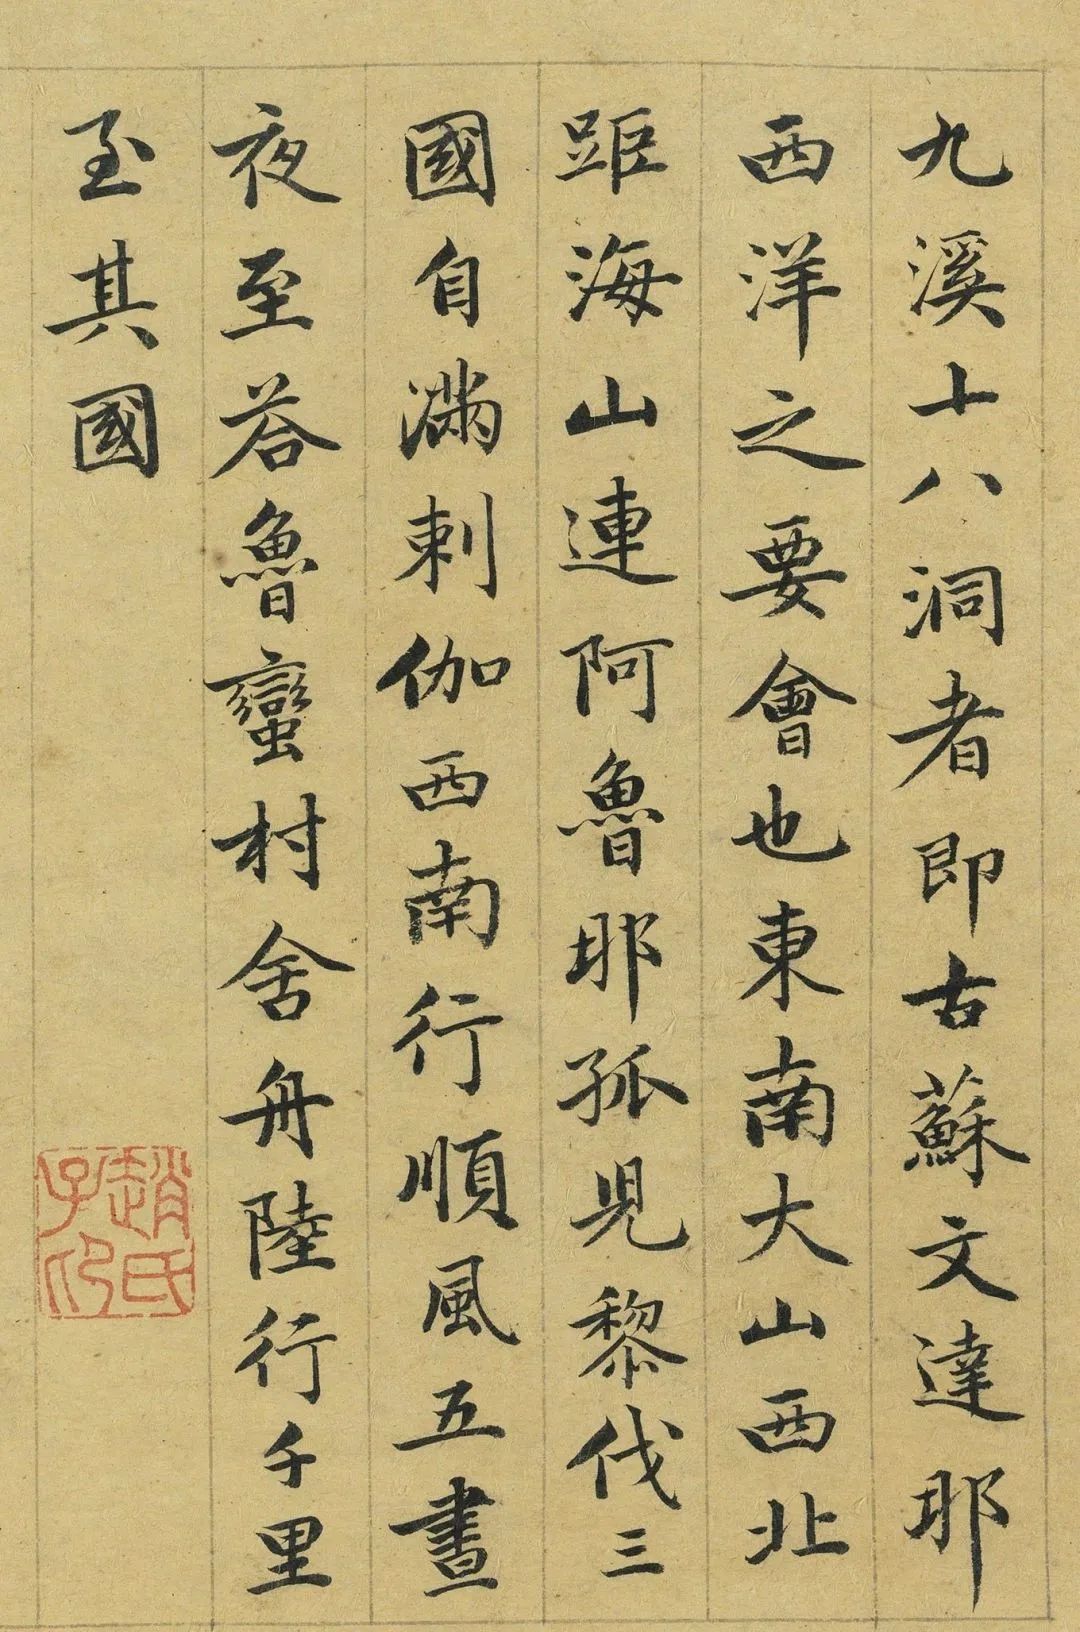 九溪十八洞者即古蘇文達耶
西洋之要會也東南大山西北
距海山連阿魯耶孤児黎伐三
國自滿剌伽西南行順風五晝
夜至荅魯蠻村舍舟陸行千里
至其國
趙氏子印